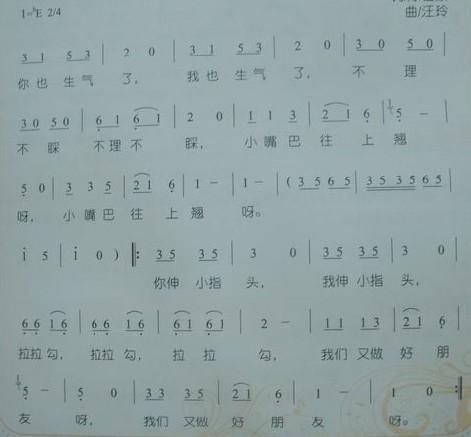 1=ᵇE 2/4
曲/汪玲
3 1 5 3 | 2 0 | 3 1 5 3 | 2 0 | 3 0 3 0 | 5 0
你也 生气 了, 我也 生气 了, 不 理
3 0 5 0 | 6 1 6 1 | 2 0 | 1 1 3 | 2 1 6 | 5 -
不 睬 不理不 睬, 小嘴巴 往 上 翘
5 0 | 3 3 5 | 2 1 6 | 1 - | 1 - | ( 3 5 6 5 | 3 5 3 5 6 5
呀, 小嘴巴 往 上 翘 呀。
i 5 | i 0 ) ‖: 3 5 3 5 | 3 0 | 3 5 3 5 | 3 0 |
你伸 小指 头, 我伸 小指 头,
6 6 1 6 | 6 6 1 6 | 6 1 6 1 | 2 - | 1 1 1 3 | 2 1 6 |
拉拉 勾, 拉拉 勾, 拉 拉 勾, 我们 又做 好 朋
5 - | 5 0 | 3 3 3 5 | 2 1 6 | 1 - | 1 0 :‖
友 呀, 我们 又做 好 朋 友 呀。